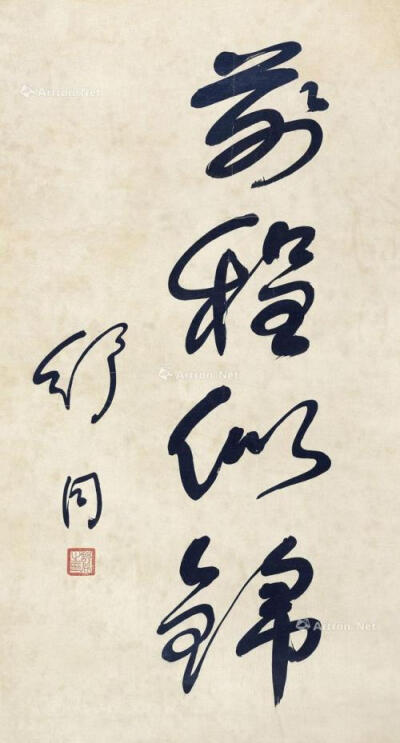 前程似锦
舒同
Artron.Net
Artron.Net
Artron.Net